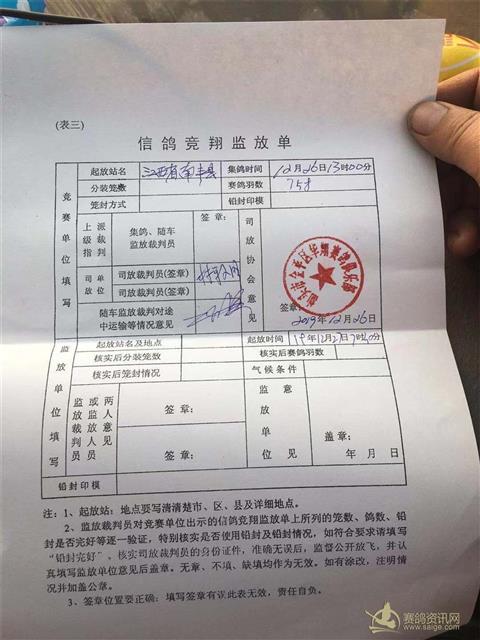 (表三)
信鸽竞翔监放单
竞赛单位填写
起放站名 江西省南丰县 集鸽时间 12月26日13时00分
分装笼数 赛鸽羽数
笼封方式 铅封印模
上派级裁指判 集鸽、随车监放裁判员 签章: 司放协会意见
司单放位 司放裁判员(签章)
司放裁判员(签章)
随车监放裁判对途中运输等情况意见
签章:
2019年12月26日
监放单位填写
起放站名及地点 起放时间 19年12月27日7时
核实后分装笼数 核实后赛鸽羽数
核实后笼封情况 气候条件
监或两放监人裁放意判人见员员 签章: 监放单位意见
签章: 盖章:
年 月 日
铅封印模
注:1、起放站:地点要写清清楚市、区、县及详细地点。
2、监放裁判员对竞赛单位出示的信鸽竞翔监放单上所列的笼数、鸽数、铅
封是否完好等逐一验证,特别核实是否使用铅封及铅封情况,如符合要求请填写
“铅封完好”、核实司放裁判员的身份证件,准确无误后,监督公开放飞,并认
真填写监放单位意见后盖章。无章、不填、缺填均作为无效。如有涂改,注明情
况并加盖公章。
3、签章位置要正确:填写签章有误此表无效,责任自负。
赛鸽资讯网
www.saige.com